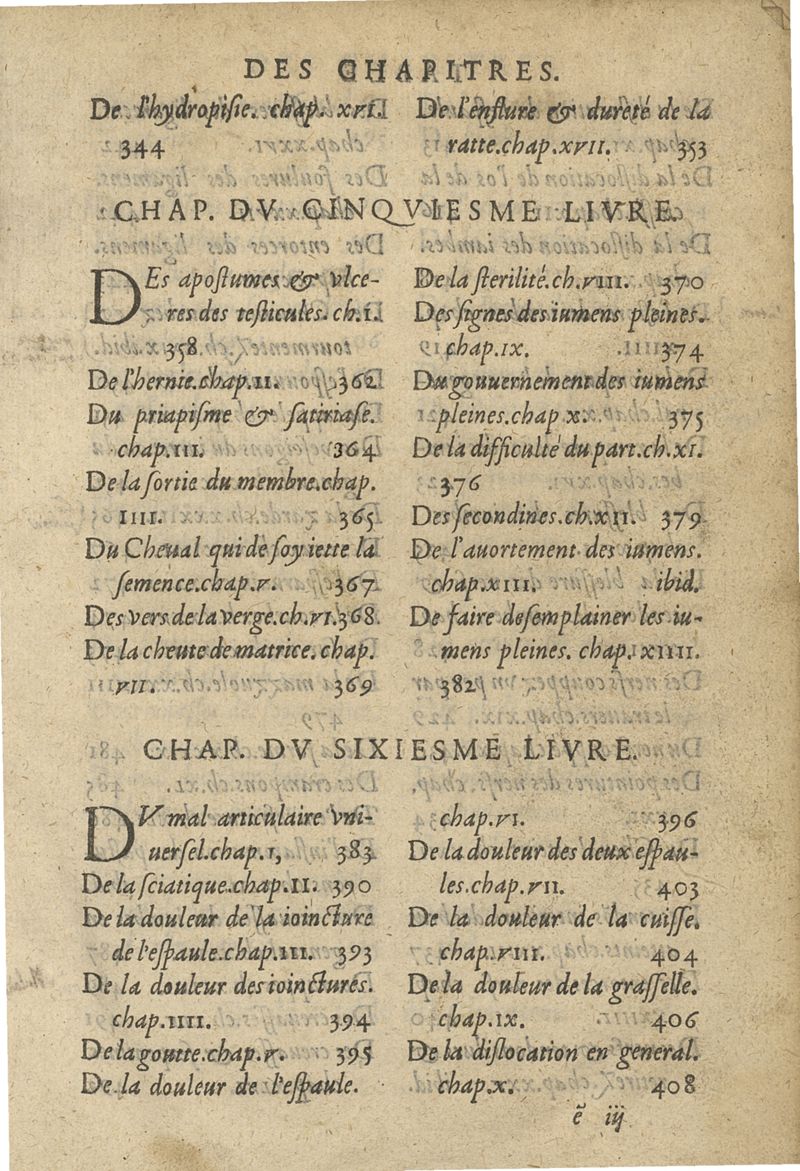 DES CHAPITRES.
De l'hydropisie. chap. xvi.
344
De l'enflure & dureté de la
ratte.chap.xvii. 353
CHAP. DV CINQVIESME LIVRE.
DEs apostumes & vlce-
res des testicules. ch.i.
358
De l'hernie.chap.ii. 362
Du priapisme & satiriase.
chap.iii. 364
De la sortie du membre.chap.
iiii. 365
Du Cheual qui de soy iette la
semence.chap.v. 367
Des vers de la verge.ch.vi.368
De la cheute de matrice. chap.
vii. 369
De la sterilité.ch.viii. 370
Des signes des iumens pleines.
chap.ix. 374
Du gouuernement des iumens
pleines.chap.x. 375
De la difficulté du part.ch.xi.
376
Des secondines.ch.xii. 379
De l'auortement des iumens.
chap.xiii. ibid.
De faire desemplainer les iu-
mens pleines. chap.xiiii.
382
CHAP. DV SIXIESME LIVRE.
DV mal articulaire vni-
uersel.chap.i, 383
De la sciatique.chap.ii. 390
De la douleur de la ioincture
de l'espaule.chap.iii. 393
De la douleur des ioinctures.
chap.iiii. 394
De la goutte.chap.v. 395
De la douleur de l'espaule.
chap.vi. 396
De la douleur des deux espau-
les.chap.vii. 403
De la douleur de la cuisse.
chap.viii. 404
De la douleur de la grasselle.
chap.ix. 406
De la dislocation en general.
chap.x. 408
ẽ iij